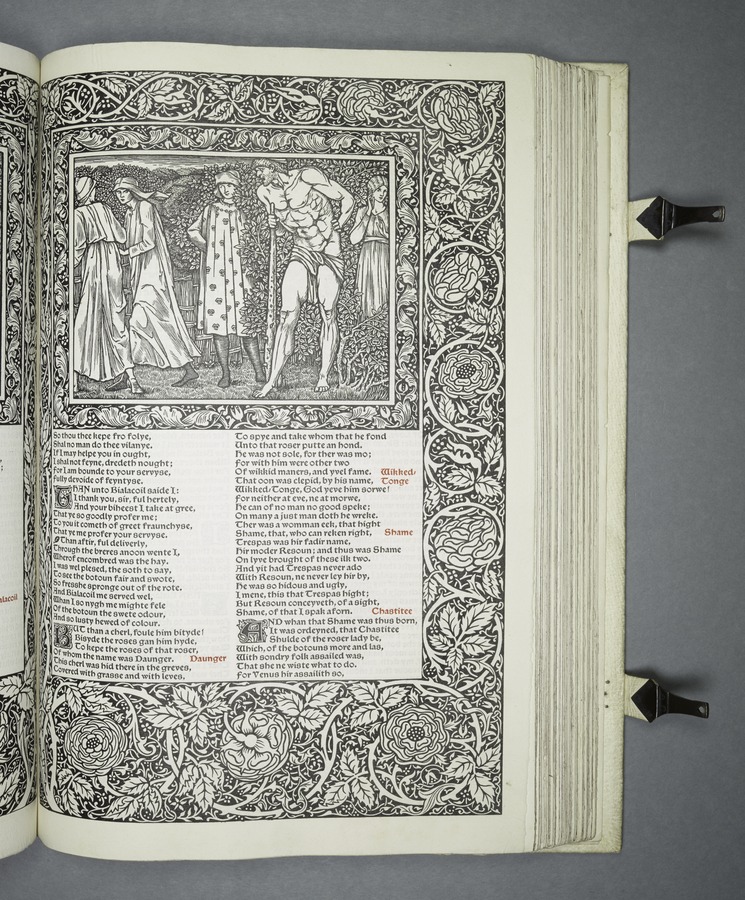 So thou thee kepe fro folye,
Shal no man do thee vilanye.
If I may helpe you in ought,
I shal not feyne, dredeth nought;
For I am bounde to your servyse,
Fully devoide of feyntyse.
THAN unto Bialacoil saide I:
I thank you, sir, ful hertely,
And your biheest I take at gree,
That ye so goodly profer me;
To you it cometh of greet fraunchyse,
That ye me profer your servyse.
Than aftir, ful deliverly,
Through the breres anoon wente I,
Wherof encombred was the hay.
I was wel plesed, the soth to say,
To see the botoun fair and swote,
So fresshe spronge out of the rote.
And Bialacoil me served wel,
Whan I so nygh me mighte fele
Of the botoun the swete odour,
And so lusty hewed of colour.
BUT than a cherl, foule him bityde!
Bisyde the roses gan him hyde,
To kepe the roses of that roser,
Of whom the name was Daunger.
Daunger
This cherl was hid there in the greves,
Covered with grasse and with leves,
To spye and take whom that he fond
Unto that roser putte an hond.
He was not sole, for ther was mo;
For with him were other two
Of wikkid maners, and yvel fame.
Wikked-
That oon was clepid, by his name,
Tonge
Wikked-Tonge, God yeve him sorwe!
For neither at eve, ne at morwe,
He can of no man no good speke;
On many a just man doth he wreke.
Ther was a womman eek, that hight
Shame, that, who can reken right,
Shame
Trespas was hir fadir name,
Hir moder Resoun; and thus was Shame
On lyve brought of these ilk two.
And yit had Trespas never ado
With Resoun, ne never ley hir by,
He was so hidous and ugly,
I mene, this that Trespas hight;
But Resoun conceyveth, of a sight,
Shame, of that I spak aforn.
Chastitee
AND whan that Shame was thus born,
It was ordeyned, that Chastitee
Shulde of the roser lady be,
Which, of the botouns more and las,
With sondry folk assailed was,
That she ne wiste what to do.
For Venus hir assailith so,